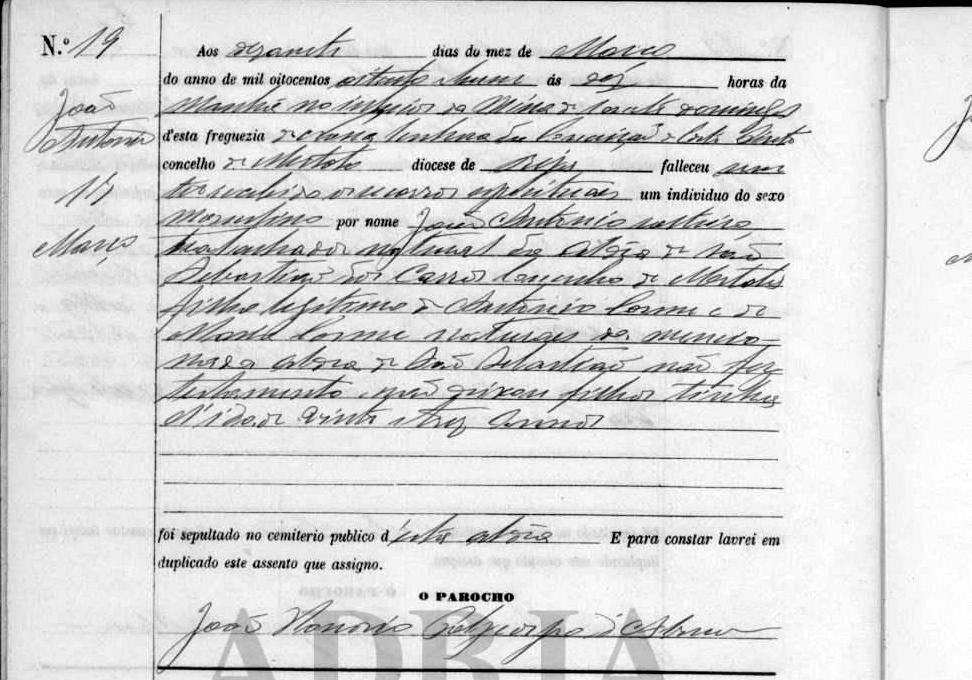 N.º 19
Aos desaseti dias do mez de Março
do anno de mil oitocentos oitenta e hum ás dez horas da
Manhã no interior da Mina de São Domingos
João
Antonio
d'esta freguezia de Nossa Senhora da Conceição
concelho de Mertola diocese de Beja falleceu sem
ter recebido os socorros espirituais um individuo do sexo
masculino por nome João Antonio solteiro
Março
trabalhador natural da aldeia de São
Sebastião dos Carros concelho de Mertola
filho legitimo de Antonio e de
naturaes da mencio=
nada aldeia de São Sebastião não fez
testamento não deixou filhos tinha
d'idade vinte e trez annos
foi sepultado no cemiterio publico d'esta aldeia E para constar lavrei em
duplicado este assento que assigno.
O PAROCHO
João d'Abreu
ADRIA